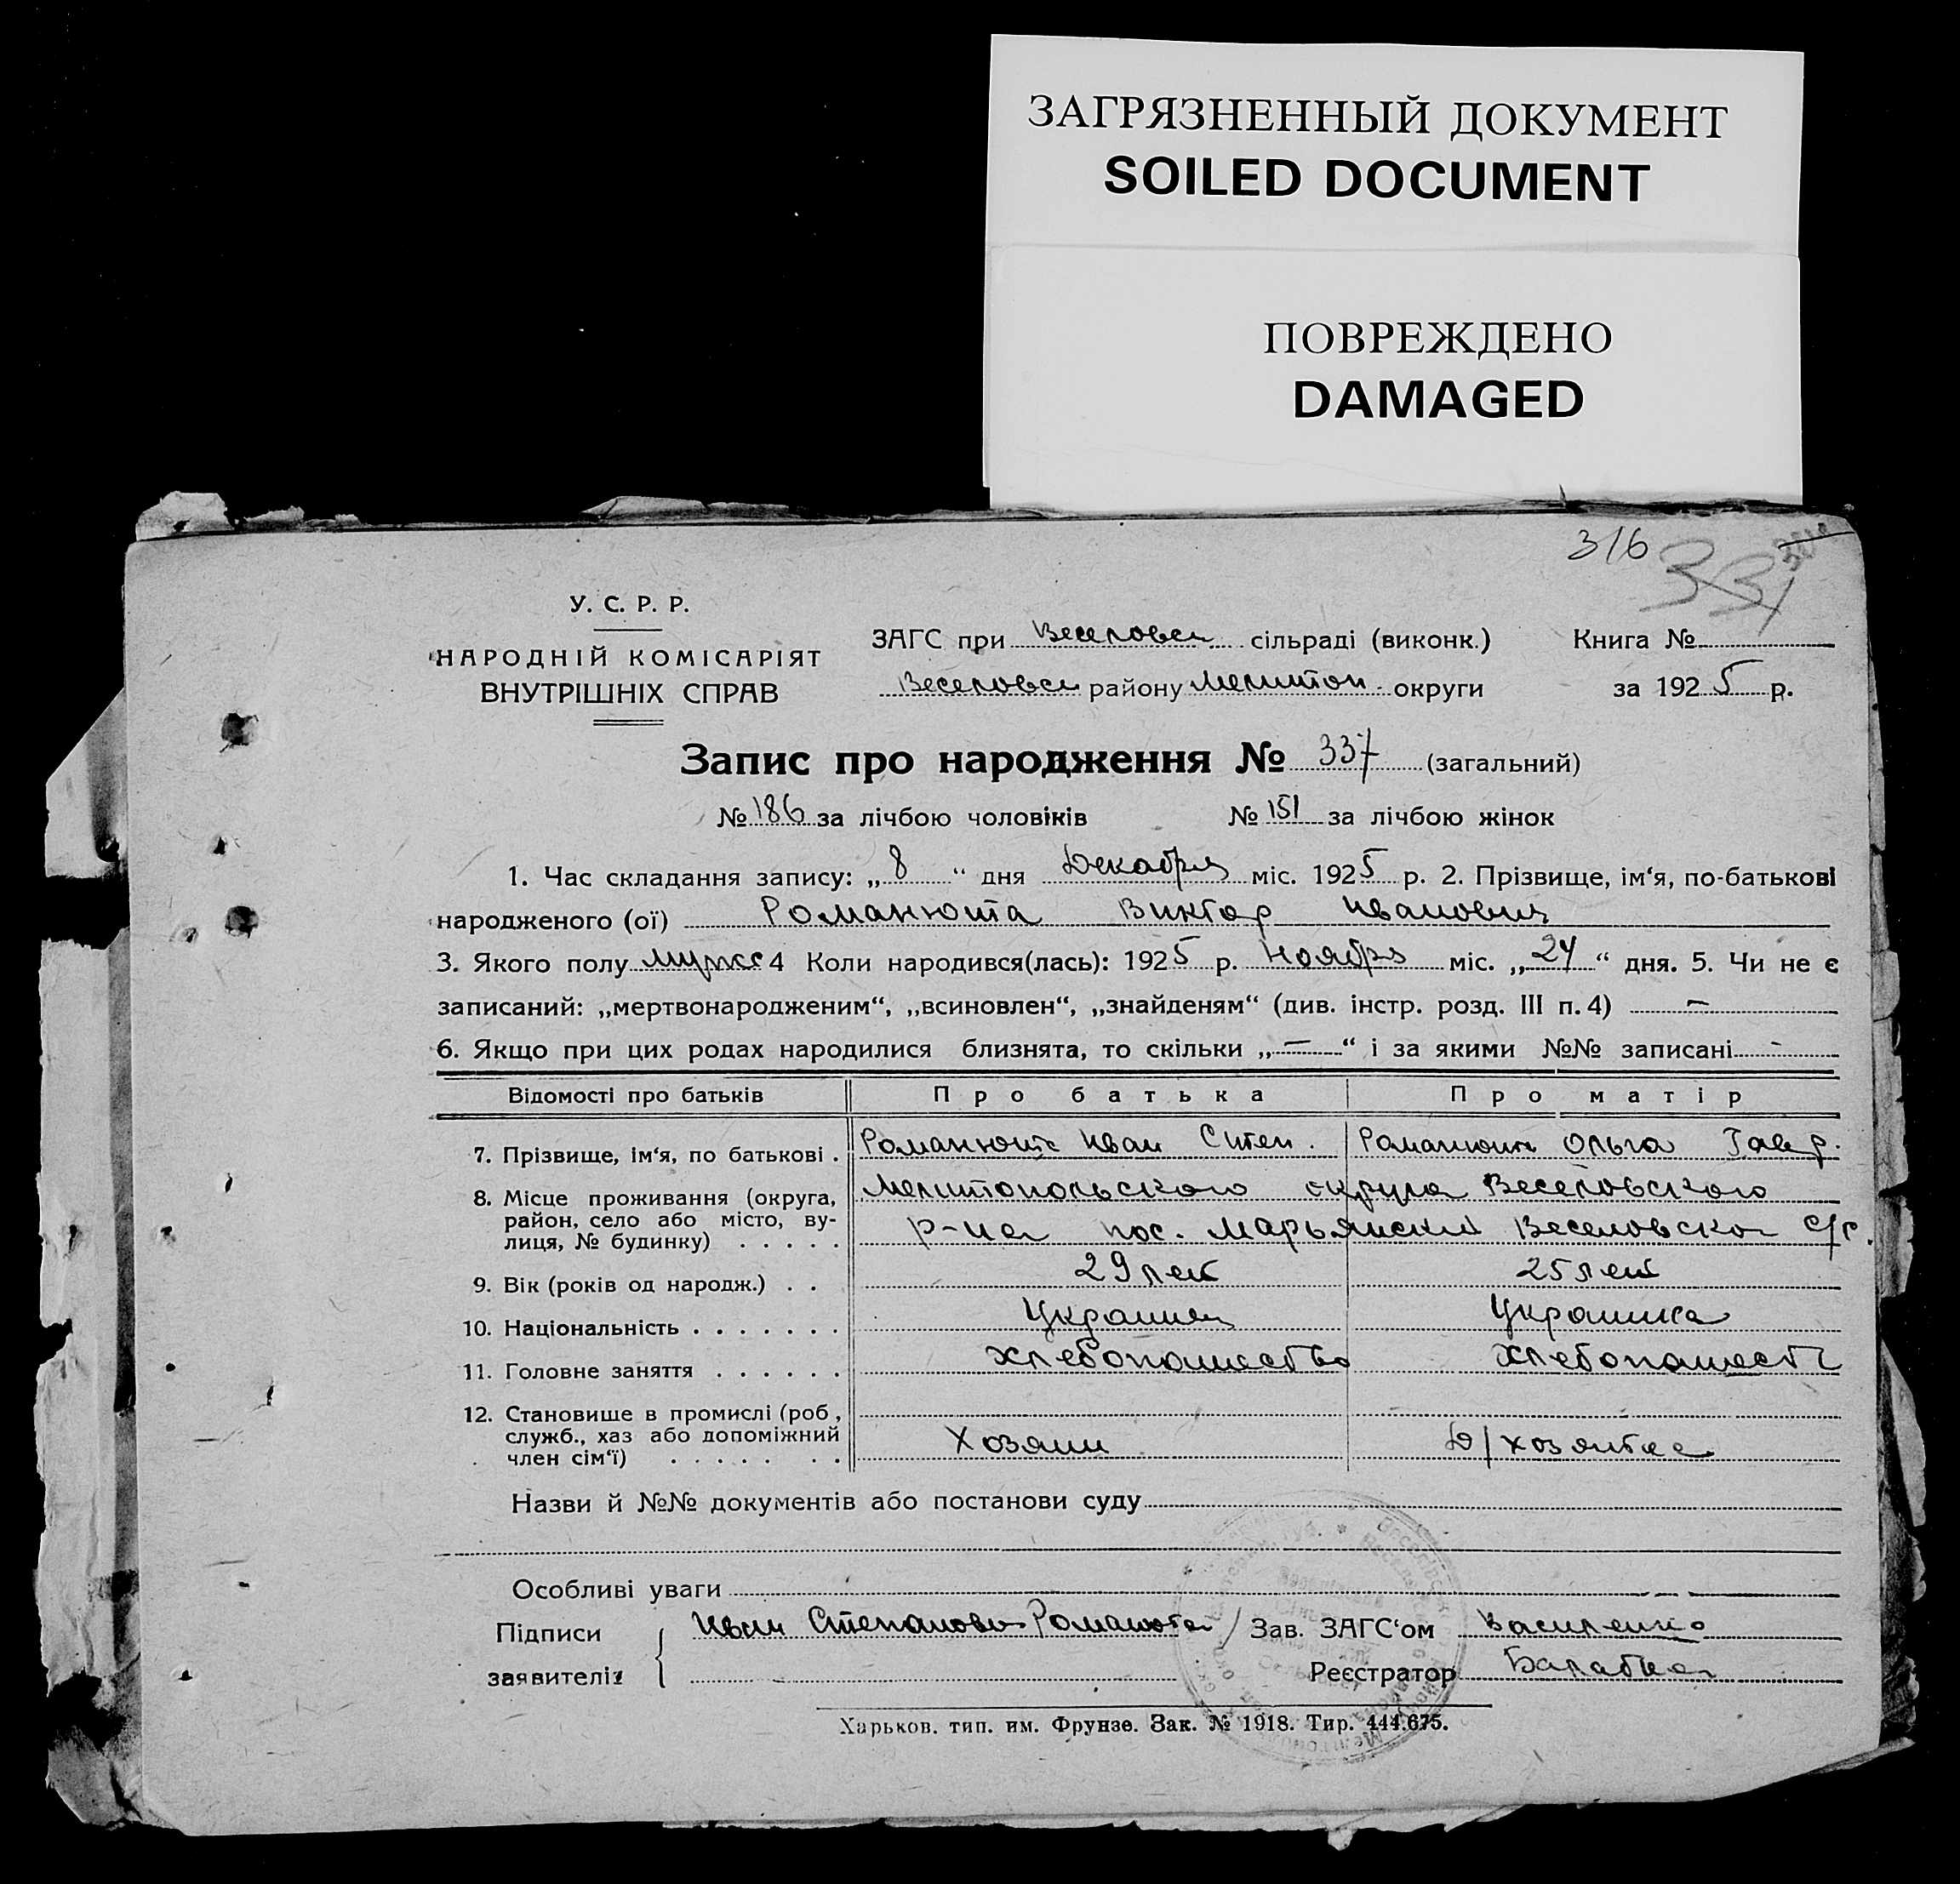 ЗАГРЯЗНЕННЫЙ ДОКУМЕНТ
SOILED DOCUMENT
ПОВРЕЖДЕНО
DAMAGED
316 331
У. С. Р. Р.
НАРОДНІЙ КОМІСАРІЯТ
ВНУТРІШНІХ СПРАВ
ЗАГС при Веселовск сільраді (виконк.) Книга №
Веселовск району Мелитоп. округи за 1925 р.
Запис про народження № 337 (загальний)
№ 186 за лічбою чоловіків № 151 за лічбою жінок
1. Час складання запису: „8“ дня Декабря міс. 1925 р. 2. Прізвище, ім‘я, по-батькові
народженого (ої) Романюта Виктор Иванович
3. Якого полу мужс 4 Коли народився(лась): 1925 р. Ноября міс. „24“ дня. 5. Чи не є
записаний: „мертвонародженим“, „всиновлен“, „знайденям“ (див. інстр. розд. III п. 4) —
6. Якщо при цих родах народилися близнята, то скільки „—“ і за якими №№ записані -
Відомості про батьків Про батька Про матір
7. Прізвище, ім‘я, по батькові . Романюта Иван Степ. Романюта Ольга Гавр.
8. Місце проживання (округа, Мелитопольского округа Веселовского
район, село або місто, ву- р-на пос. Марьянский Веселовско с/с.
лиця, № будинку) . . . . .
9. Вік (років од народж.) . . 29 лет 25 лет
10. Національність . . . . . . . Украинец Украинка
11. Головне заняття . . . . . . Хлебопашество Хлебопашест
12. Становише в промислі (роб,
служб., хаз або допоміжний Хозяин Д/хозяйка
член сім‘ї) . . . . . . .
Назви й №№ документів або постанови суду
Особливі уваги
Підписи Иван Степанови Романюта Зав. ЗАГС‘ом Василенко
заявителів Реєстратор
Харьков. тип. им. Фрунзе. Зак. № 1918. Тир. 444.675.